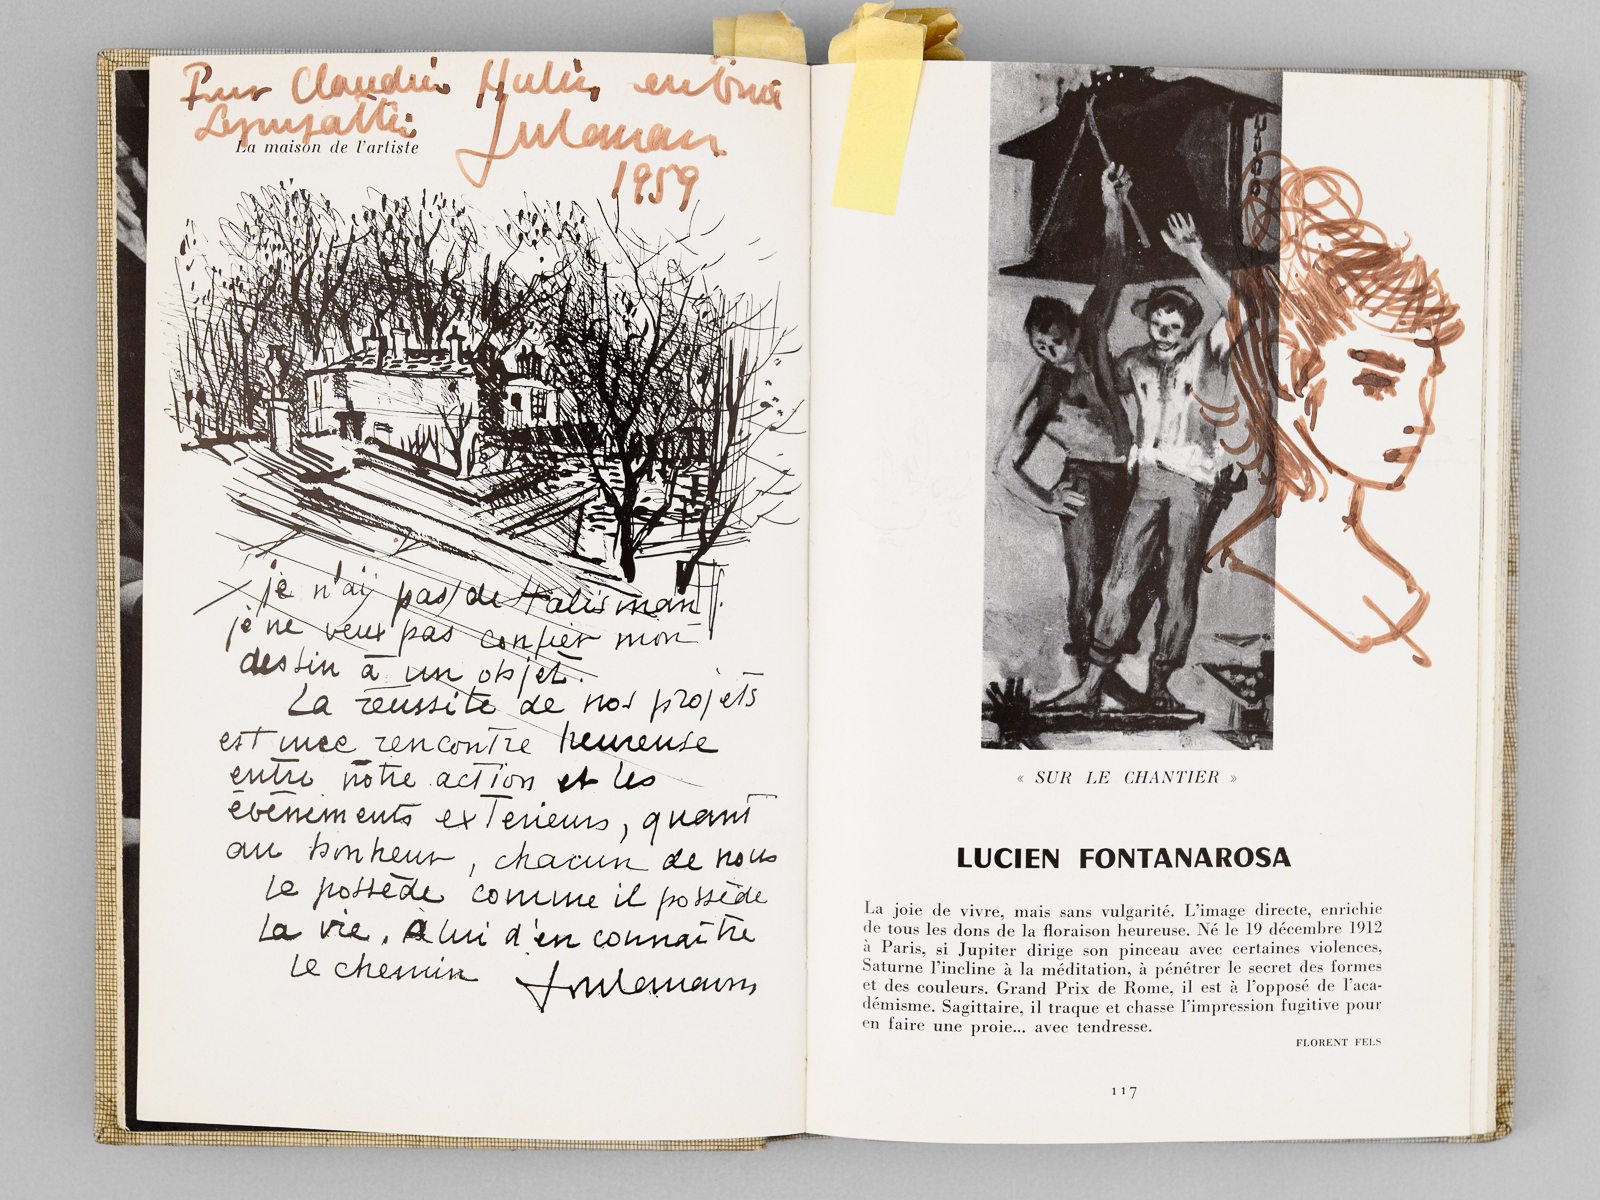 Pour Claudine Hulin, en toute
Sympathie
1959
La maison de l'artiste
je n'ai pas de talisman.
je ne veux pas confier mon
dessin à un objet.
La réussite de nos projets
est une rencontre heureuse
entre notre action et les
évènements extérieurs, quant
au bonheur, chacun de nous
le possède comme il possède
la vie. à lui d'en connaître
le chemin
« SUR LE CHANTIER »
LUCIEN FONTANAROSA
La joie de vivre, mais sans vulgarité. L'image directe, enrichie
de tous les dons de la floraison heureuse. Né le 19 décembre 1912
à Paris, si Jupiter dirige son pinceau avec certaines violences,
Saturne l'incline à la méditation, à pénétrer le secret des formes
et des couleurs. Grand Prix de Rome, il est à l'opposé de l'aca-
démisme. Sagittaire, il traque et chasse l'impression fugitive pour
en faire une proie... avec tendresse.
FLORENT FELS
117